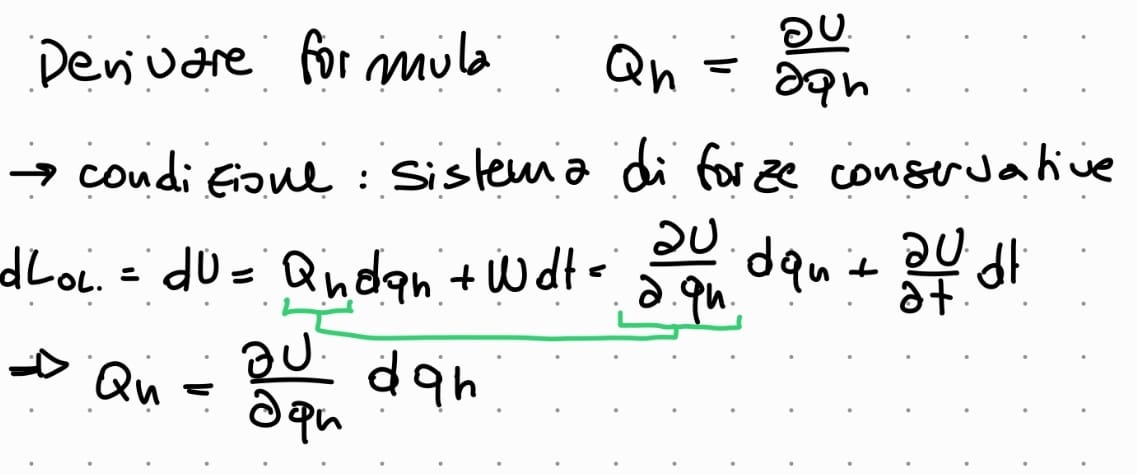 Derivare formula Qh = ∂U/∂qh
→ condizione : sistema di forze conservative
dLOL. = dU = Qh dqh + W dt = ∂U/∂qh dqh + ∂U/∂t dt
⇒ Qh = ∂U/∂qh dqh